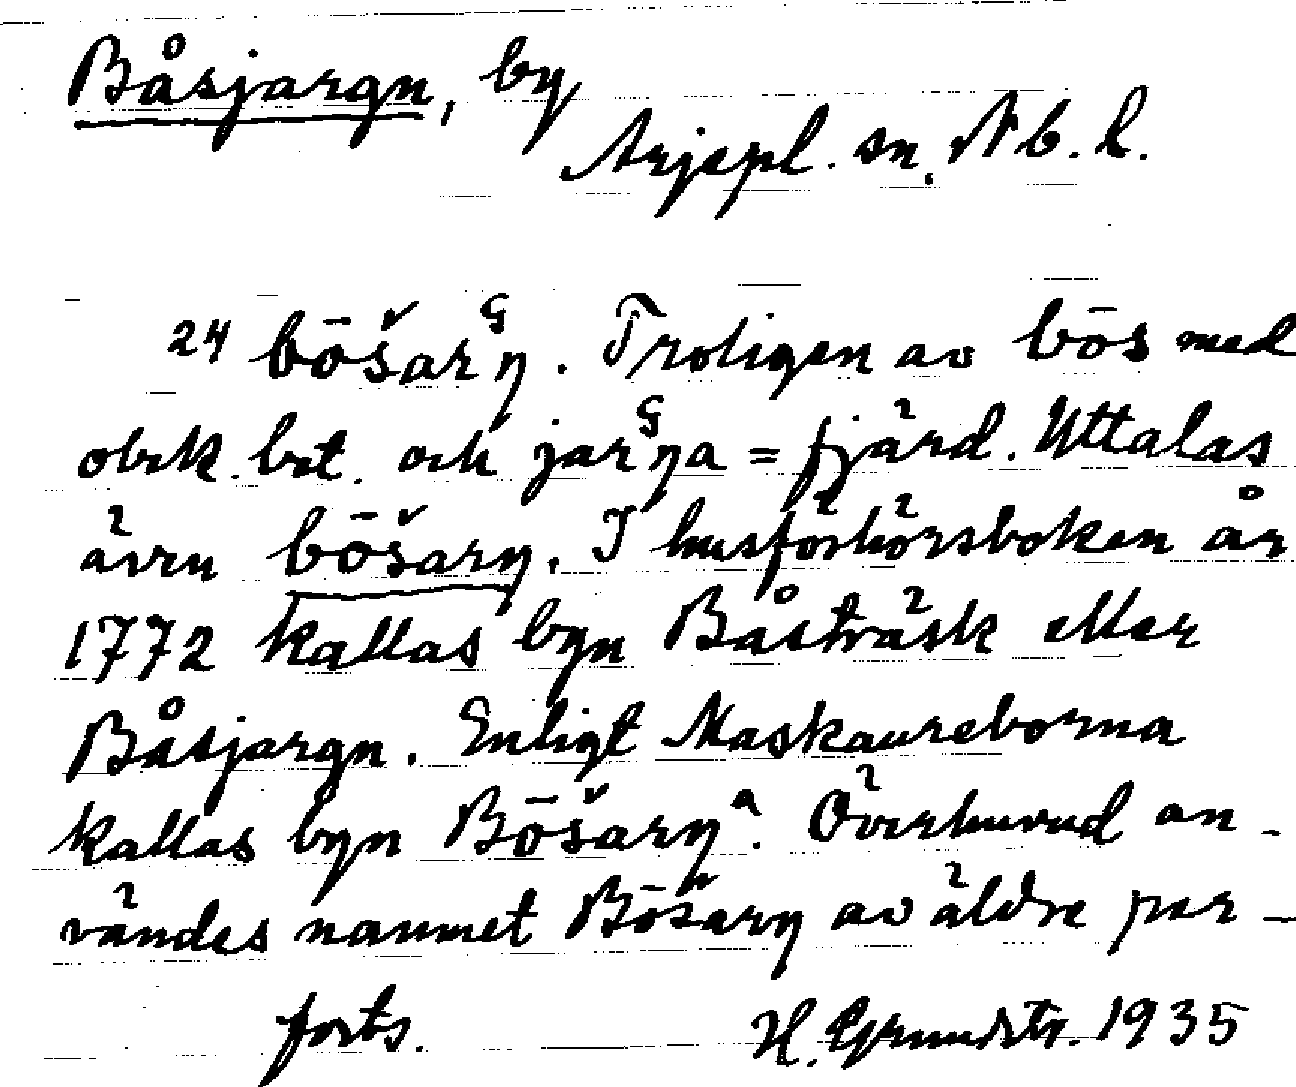 Båsjargn, by
Arjepl. sn. Nb. l.
24 bōšarᶢŋ. Troligen av bōs med
obek. bet. och jarᶢŋa = fjärd. Uttalas
även bōšarŋ. I husförhörsboken år
1772 kallas byn Båsträsk eller
Båsjargn. Enligt Maskaureborna
kallas byn Bōšarŋᵃ. Överhuvud an-
vändes namnet Bōšarŋ av äldre per-
forts. H. Grundstr. 1935